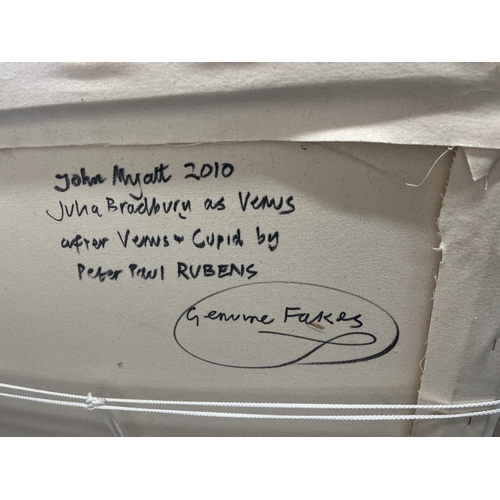 John Myatt 2010
Julia Bradbury as Venus
after Venus + Cupid by
Peter Paul RUBENS
Genuine Fakes